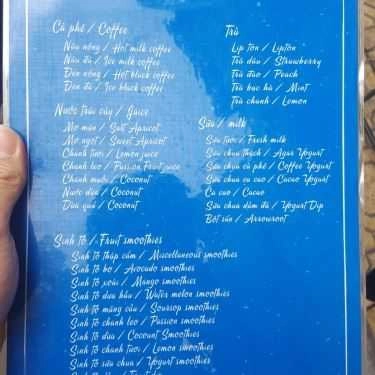 Cà phê / Coffee
Nâu nóng / Hot milk coffee
Nâu đá / Ice milk coffee
Đen nóng / Hot black coffee
Đen đá / Ice black coffee
Trà
Lip tôn / Lipton
Trà dâu / Strawberry
Trà đào / Peach
Trà bạc hà / Mint
Trà chanh / Lemon
Nước trái cây / Juice
Mơ mặn / Salt Apricot
Mơ ngọt / Sweet Apricot
Chanh tươi / Lemon juice
Chanh leo / Passion Fruit juice
Chanh muối / Coconut
Nước dừa / Coconut
Dừa quả / Coconut
Sữa / milk
Sữa tươi / Fresh milk
Sữa chua thạch / Agar Yogurt
Sữa chua cà phê / Coffee Yogurt
Sữa chua ca cao / Cacao Yogurt
Ca cao / Cacao
Sữa chua dầm đá / Yogurt Dip
Bột sắn / Arrowroot
Sinh tố / Fruit smoothies
Sinh tố thập cẩm / Miscellaneous smoothies
Sinh tố bơ / Avocado smoothies
Sinh tố xoài / Mango smoothies
Sinh tố dưa hấu / Water melon smoothies
Sinh tố mãng cầu / Soursop smoothies
Sinh tố chanh leo / Passion smoothies
Sinh tố dừa / Coconut Smoothies
Sinh tố chanh tươi / Lemon smoothies
Sinh tố sữa chua / Yogurt smoothies
Sinh tố